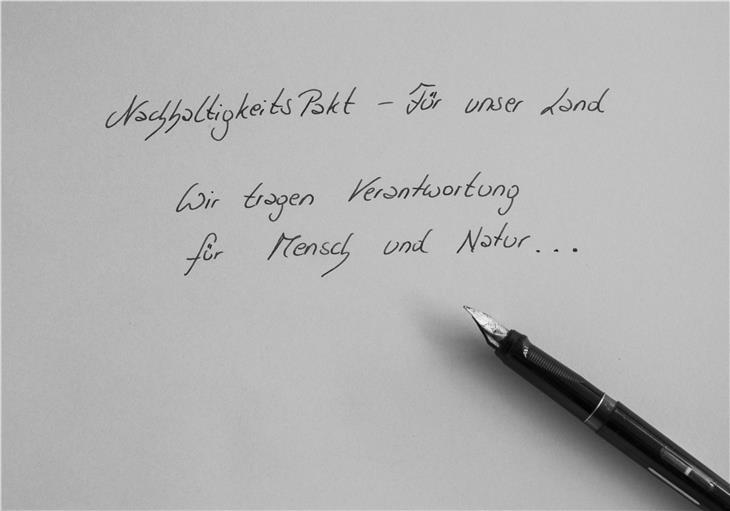 NachhaltigkeitsPakt – Für unser Land
Wir tragen Verantwortung
für Mensch und Natur...